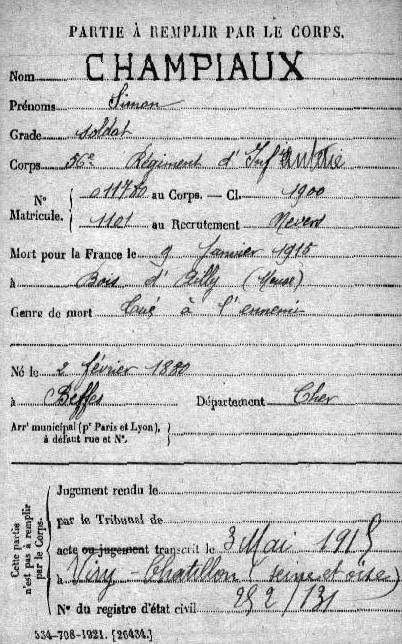 PARTIE À REMPLIR PAR LE CORPS.
Nom CHAMPIAUX
Prénoms Simon
Grade soldat
Corps 56e Régiment d'Infanterie
N° Matricule. { 011780 au Corps. — Cl. 1900
1101 au Recrutement Nevers
Mort pour la France le 9 Janvier 1915
à Bois d'Ailly (Meuse)
Genre de mort Tué à l'ennemi
Né le 2 février 1880
à Beffes Département Cher
Arrt municipal (pr Paris et Lyon), à défaut rue et N°. {
Cette partie n'est pas à remplir par le Corps.
Jugement rendu le
par le Tribunal de
acte ou jugement transcrit le 3 Mai 1915
à Viry-Chatillon (Seine et Oise)
N° du registre d'état civil 252/131
534-708-1921. [26434.]